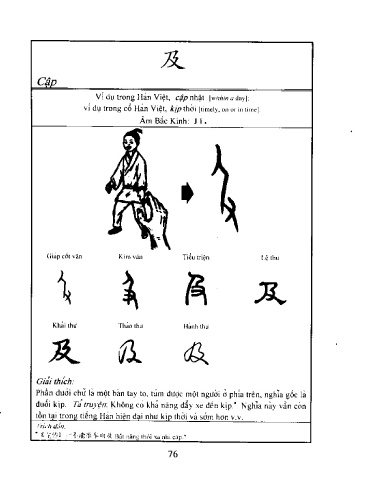 及
Cập
Ví dụ trong Hán Việt, cập nhật [within a day];
ví dụ trong cổ Hán Việt, kịp thời [timely, on or in time].
Âm Bắc Kinh: Jí.
Giáp cốt văn Kim văn Tiểu triện Lệ thư
及
Khải thư Thảo thư Hành thư
及 及 及
Giải thích:
Phần dưới chữ là một bàn tay to, túm được một người ở phía trên, nghĩa gốc là
đuổi kịp. Tả truyện: Không có khả năng đẩy xe đến kịp.* Nghĩa này vẫn còn
tồn tại trong tiếng Hán hiện đại như kịp thời và sớm hơn v.v.
Trích dẫn:
76